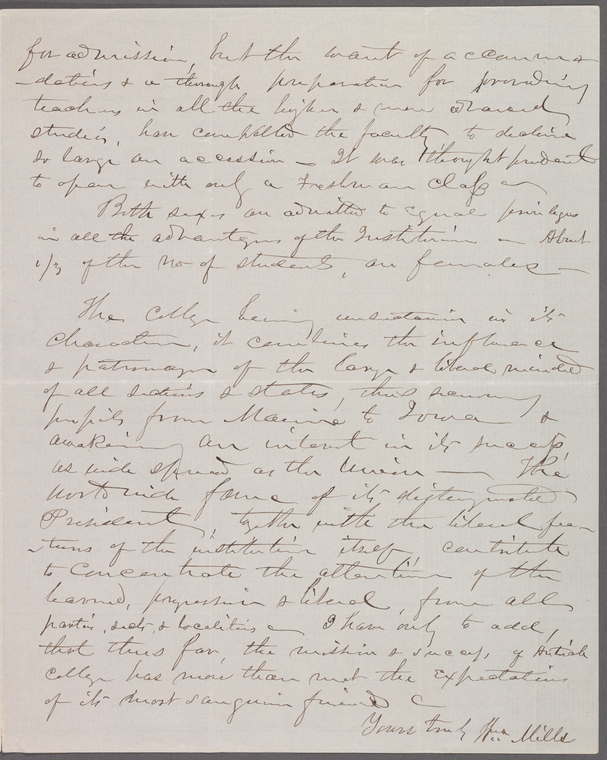 for admission, but the want of accommo
-dations & a through preparation for providing
teachers in all the higher & more advanced
studies, have compelled the faculty to decline
so large an accession — It was thought prudent
to open with only a Freshman Class —
Both sexes are admitted to equal privileges
in all the advantages of the Institution — About
1/3 of the No of students, are females —
The College being unsectarian in its
character, it combines the influence
& patronage of the large & liberal minded
of all sections & states, thus securing
pupils from Maine to Iowa &
awakening an interest in its success,
as wide spread as the Union — The
world wide fame of its distinguished
President, together with the liberal fea-
-tures of the institution itself, contribute
to concentrate the attention of the
learned, progressive & liberal, from all
parties, sects, & localities — I have only to add,
that thus far, the mission & success, of Antioch
College has more than met the expectations
of its most sanguine friends —
Yours truly Wm Mills